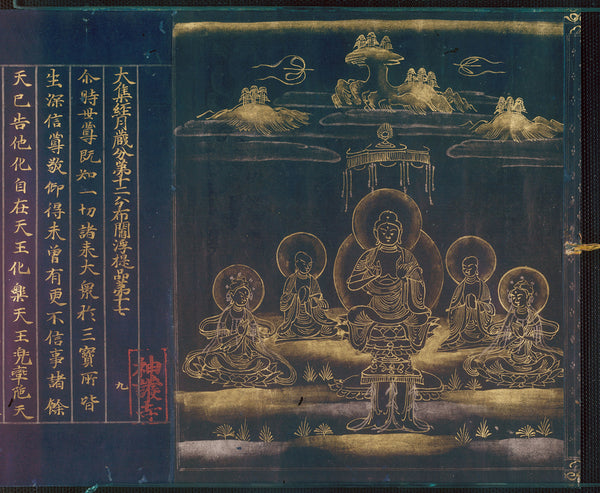 大集経月藏分第十二分布閻浮提品第十七
九
尒時世尊既知一切諸来大衆於三寶所皆
生深信尊敬仰得未曾有更不信事諸餘
天已告他化自在天王化樂天王兜率陁天
神護寺